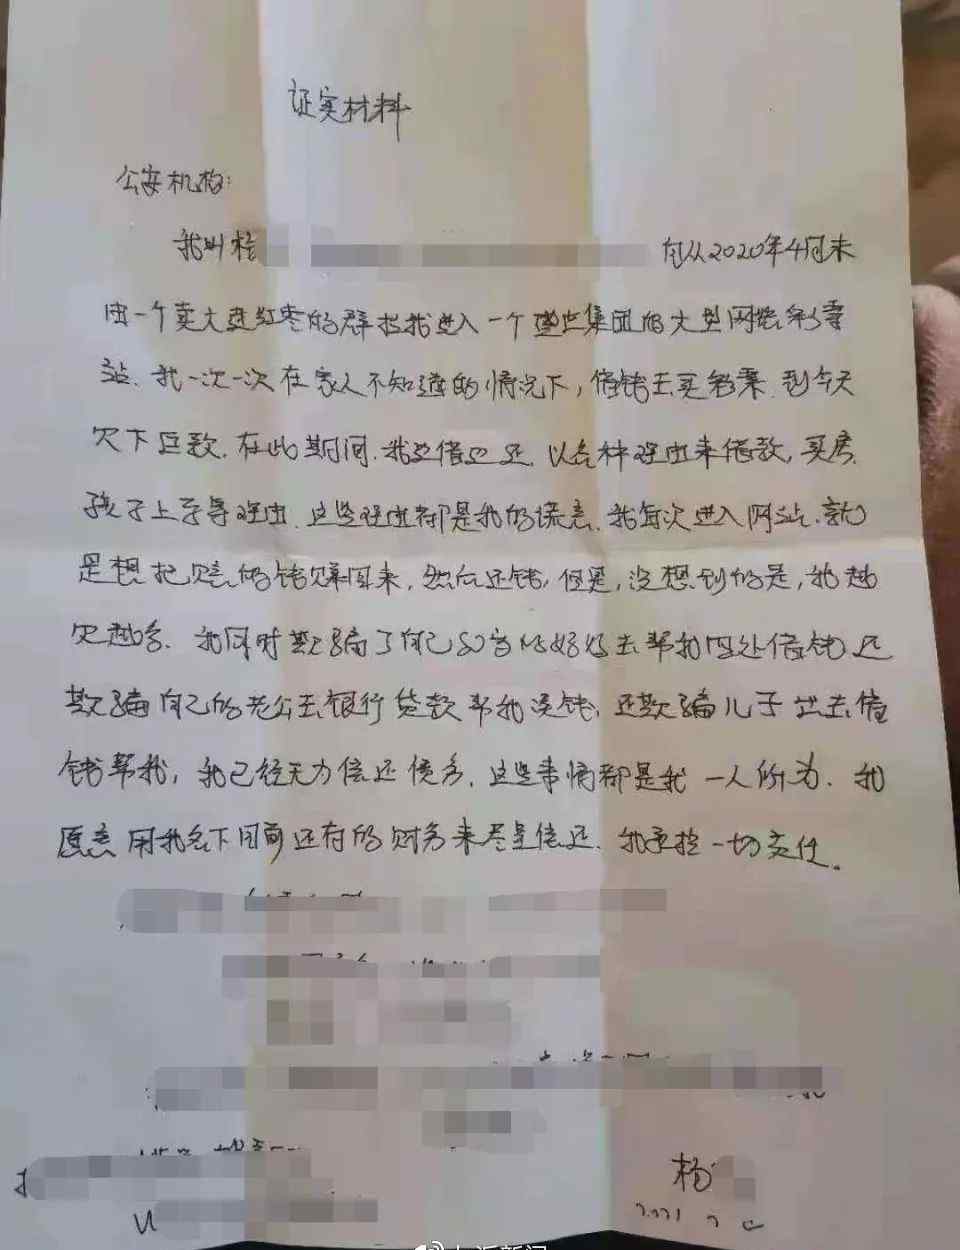 证实材料
公安机构：
我叫杨 自从2020年4月末
由一个卖大连红枣的群拉我进入一个 集团的大型网络彩票
站．我一次一次在家人不知道的情况下，借钱去买彩票．到今天
欠下巨款．在此期间．我边借边还．以各种理由来借款，买房．
孩子上学等理由．这些理由都是我的谎言．我每次进入网站．就
是想把 的钱赚回来，然后还钱，但是，没想到的是，我越
欠越多．我同时欺骗了自己80岁的 去帮我四处借钱还
欺骗自己的老公去银行贷款帮我 钱．还欺骗儿子出去借
钱帮我，我已经无力偿还债务．这些事情都是我一人所为．我
愿意用我名下目前还存的财务来尽量偿还．我承担一切责任。
杨